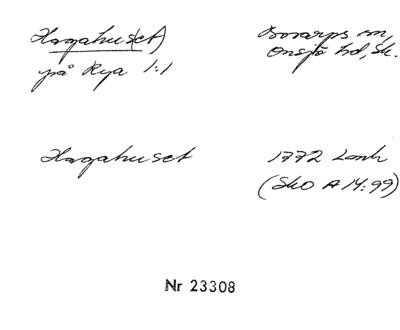 Hagahuset)
på Rya 1:1
Bosarps sn,
Onsjö hd, Sk.
Hagahuset
1772 Lanh
(SkO A 14:99)
Nr 23308